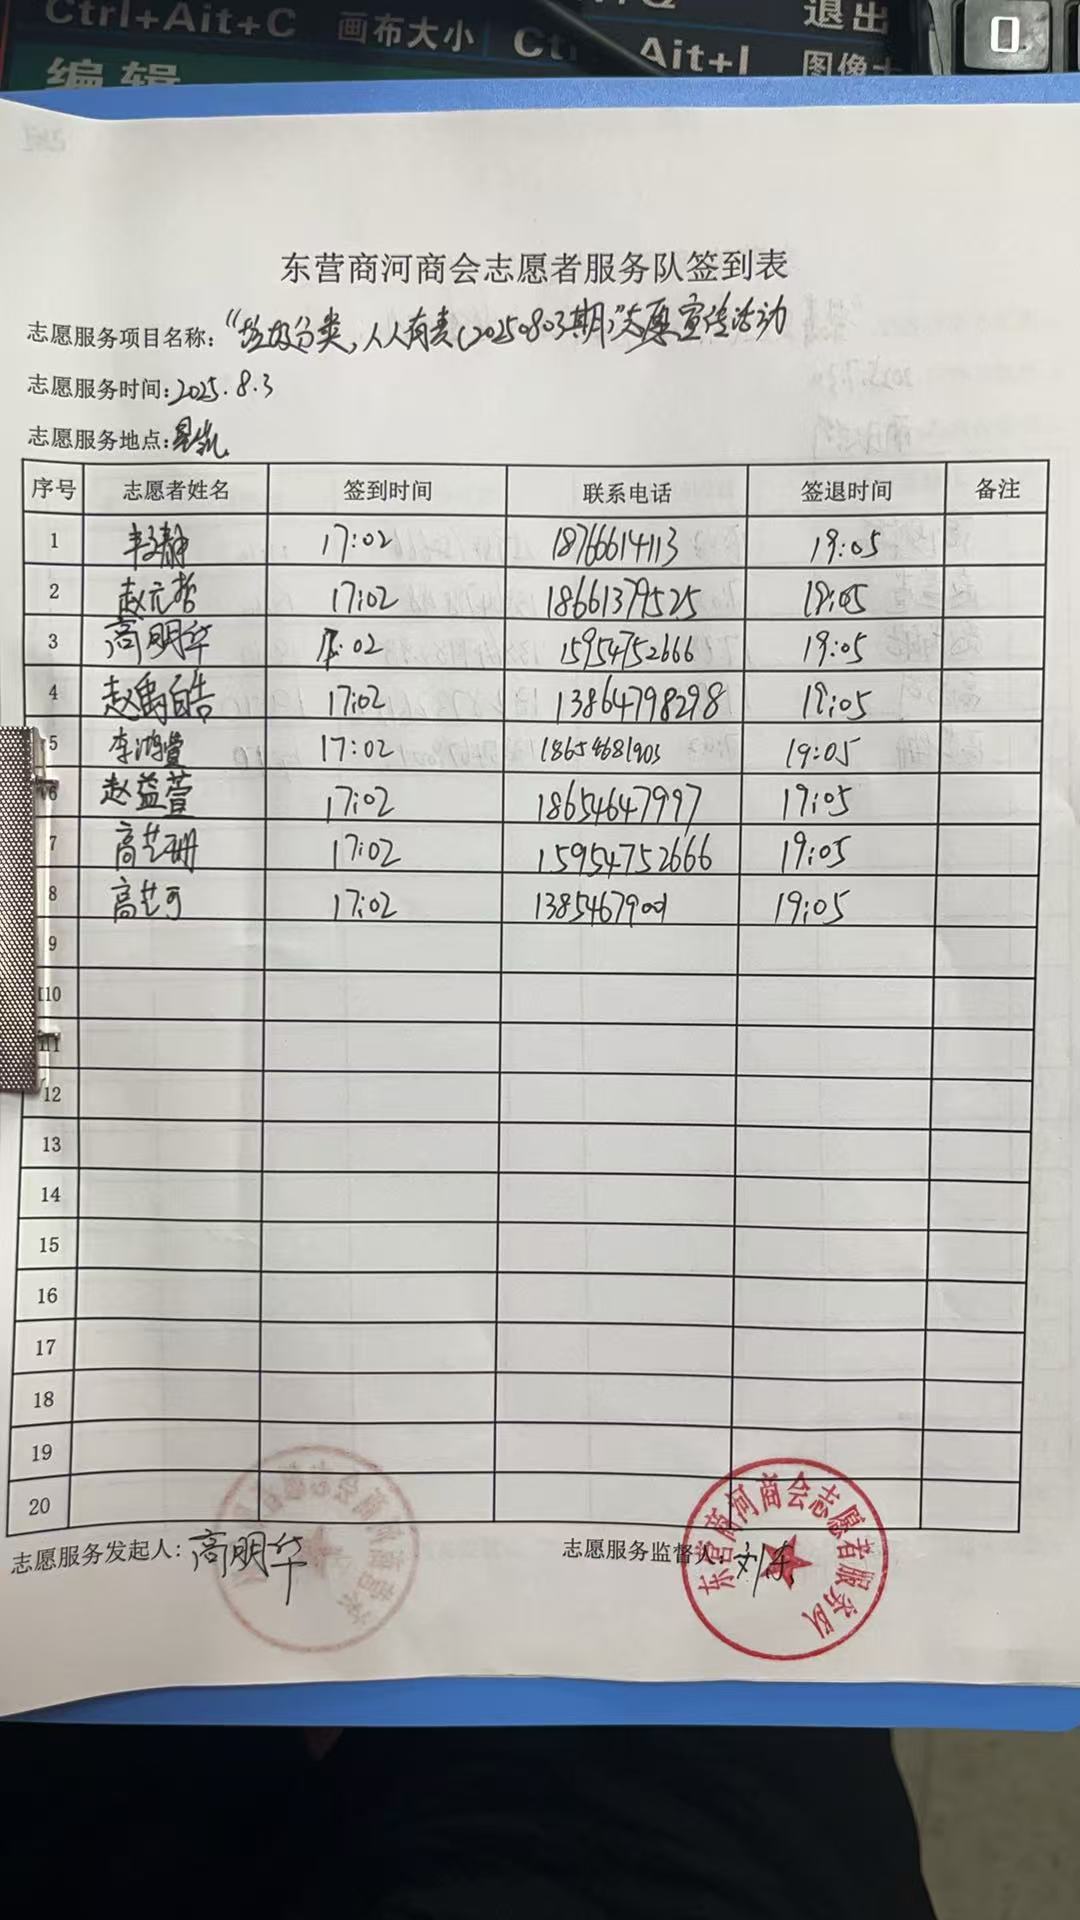 Ctrl+Ait+C 画布大小 Ct Ait+I 退出 0
编辑 图像大
东营商河商会志愿者服务队签到表
志愿服务项目名称：“垃圾分类，人人有责（20250803期）”志愿宣传活动
志愿服务时间：2025.8.3
志愿服务地点：
序号 志愿者姓名 签到时间 联系电话 签退时间 备注
1 静 17:02 18766614113 19:05
2 赵元哲 17:02 18661379525 19:05
3 高明华 17:02 15954752666 19:05
4 赵禹皓 17:02 13864798298 19:05
5 李鸿萱 17:02 18654681903 19:05
6 赵益萱 17:02 18654647997 19:05
7 高艺珊 17:02 15954752666 19:05
8 高艺可 17:02 13854679001 19:05
9
10
11
12
13
14
15
16
17
18
19
20
志愿服务发起人：高明华 志愿服务监督人：刘东
东营商河商会志愿者服务队